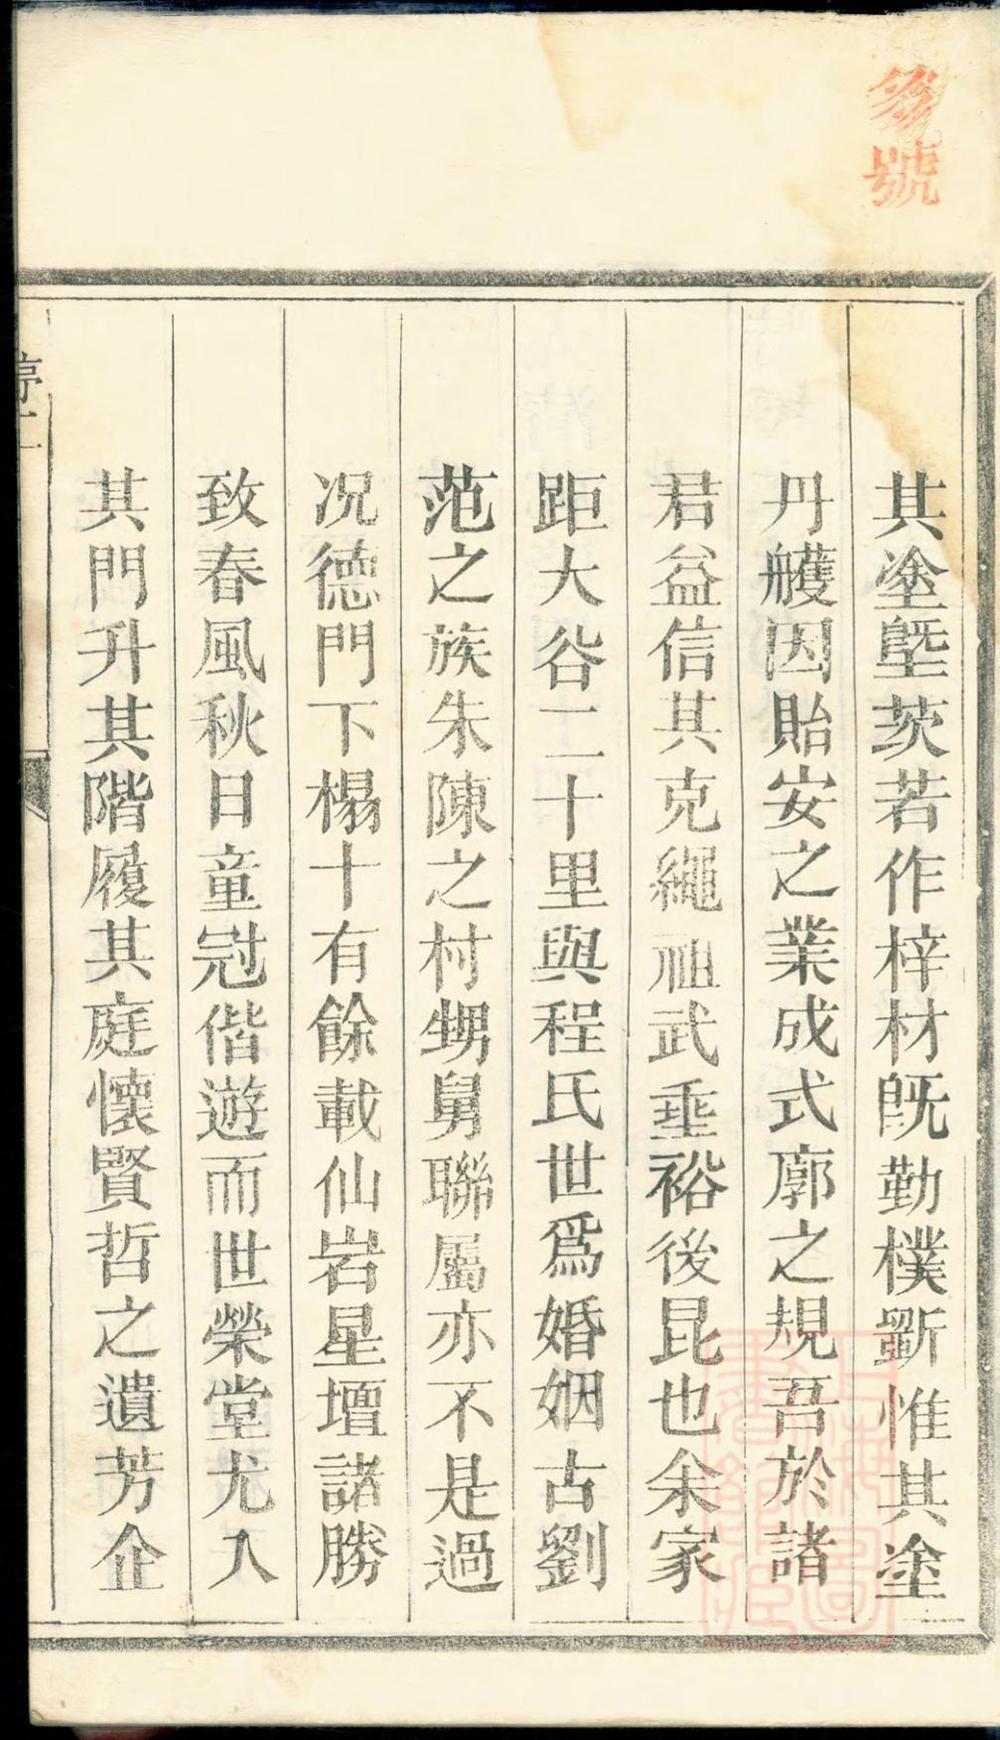 其塗塈茨若作梓材旣勤樸斵惟其塗
丹艧因貽安之業成式廓之規吾於諸
君益信其克繩祖武垂裕後昆也余家
距大谷二十里與程氏世爲婚姻古劉
范之族朱陳之村甥舅聯屬亦不是過
况德門下榻十有餘載仙岩星壇諸勝
致春風秋日童冠偕遊而世榮堂尤入
其門升其階履其庭懷賢哲之遺芳企
号號